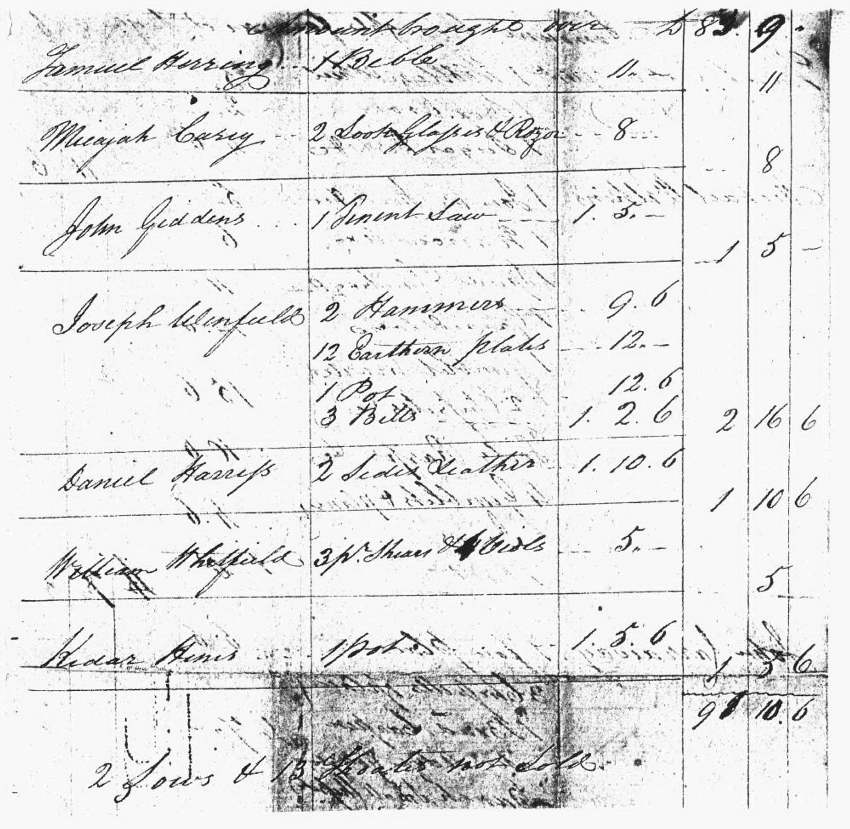 Amount brought over £ 83. 9 -
Samuel Herring 1 Bible 11.- 11
Micajah Casey 2 Look Glasses & Rozor 8 - 8
John Giddens 1 Tenent Saw 1. 5.- 1 5 -
Joseph Winfield 2 Hammers 9. 6
12 Earthern Plates 12.-
1 Pot 12. 6
3 Bells 1. 2. 6 2 16 6
Daniel Harriss 2 Sides Leather 1. 10. 6 1 10 6
William Whitfield 3 pr. Shears & 5.- 5
Kedar Hines 1 Pot 1. 5. 6 1 5 6
91 10. 6
2 Sows & 13 Shoates not Sold.